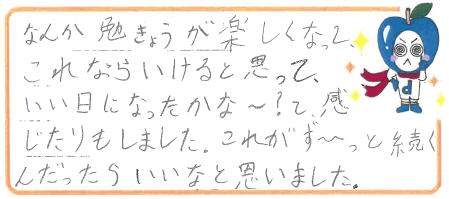 なんか勉きょうが楽しくなって、
これならいけると思って、
いい日になったかな～？て、感
じたりもしました。これがず～っと続く
んだったらいいなと思いました。
d